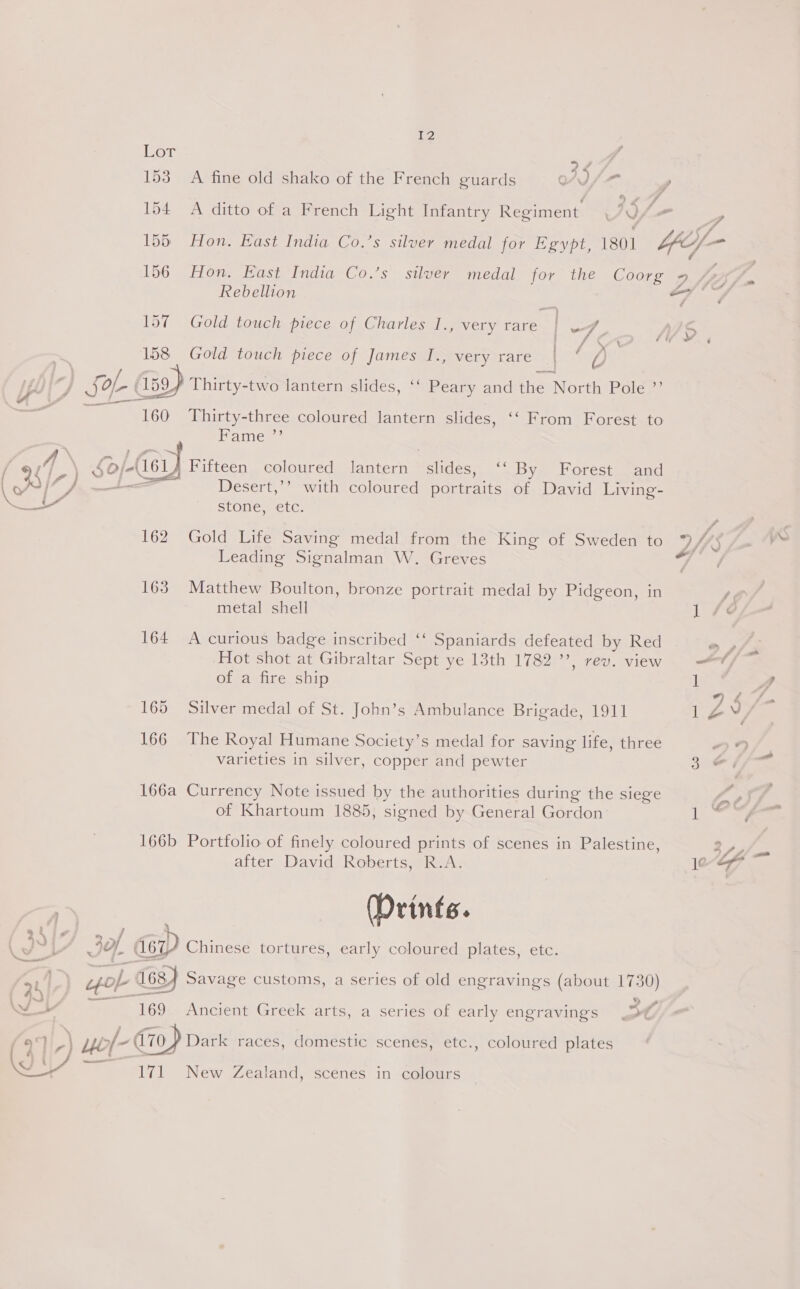 12
Lot
153 A fine old shako of the French guards
154 A ditto of a French Light Infantry Regiment
155 Hon. East India Co.’s silver medal for Egypt, 1801
156 Hon. East India Co.’s silver medal for the Coorg
Rebellion
157 Gold touch piece of Charles I., very rare
158 Gold touch piece of James I., very rare
50/- 159 Thirty-two lantern slides, ‘‘ Peary and the North Pole ’’
160 Thirty-three coloured lantern slides, ‘‘ From Forest to
Fame ’’
50/- 161 Fifteen coloured lantern slides, ‘‘ By Forest and
Desert,’’ with coloured portraits of David Living-
stone, etc.
162 Gold Life Saving medal from the King of Sweden to
Leading Signalman W. Greves
163 Matthew Boulton, bronze portrait medal by Pidgeon, in
metal shell 1
164 A curious badge inscribed ‘‘ Spaniards defeated by Red
Hot shot at Gibraltar Sept ye 13th 1782 ’’, rev. view
of a fire ship 1
165 Silver medal of St. John’s Ambulance Brigade, 1911 1
166 The Royal Humane Society’s medal for saving life, three
varieties in silver, copper and pewter 3
166a Currency Note issued by the authorities during the siege
of Khartoum 1885, signed by General Gordon 1
166b Portfolio of finely coloured prints of scenes in Palestine,
after David Roberts, R.A.
Prints.
30/- 167 Chinese tortures, early coloured plates, etc.
40/- 168 Savage customs, a series of old engravings (about 1730)
169 Ancient Greek arts, a series of early engravings
40/- 170 Dark races, domestic scenes, etc., coloured plates
171 New Zealand, scenes in colours